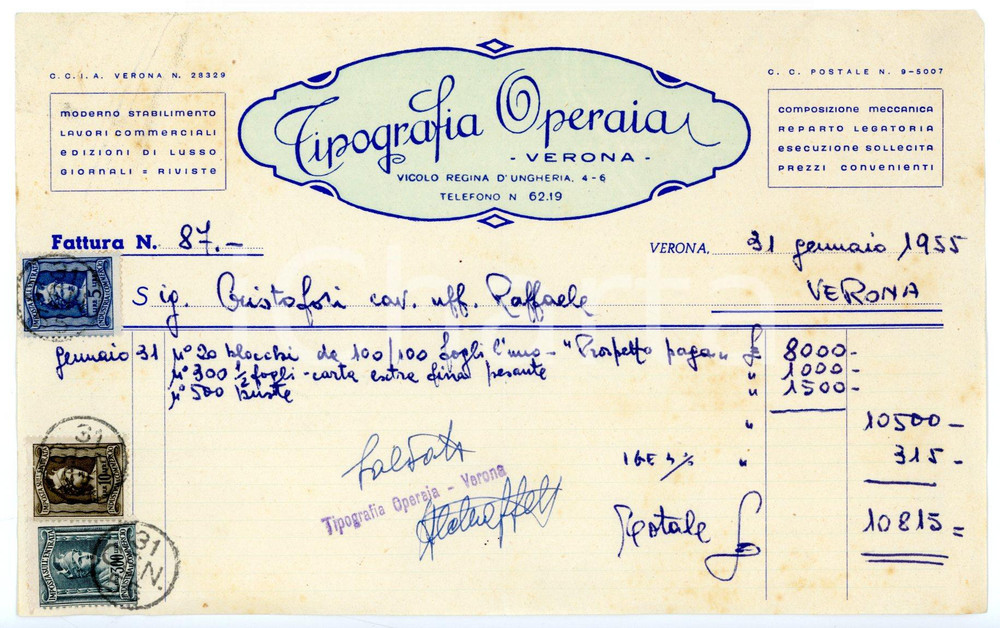 C.C.I.A. VERONA N. 28329
C. C. POSTALE N. 9-5007
MODERNO STABILIMENTO
LAVORI COMMERCIALI
EDIZIONI DI LUSSO
GIORNALI = RIVISTE
Tipografia Operaia
- VERONA -
VICOLO REGINA D'UNGHERIA, 4-6
TELEFONO N 62.19
COMPOSIZIONE MECCANICA
REPARTO LEGATORIA
ESECUZIONE SOLLECITA
PREZZI CONVENIENTI
Fattura N. 87.-
VERONA, 31 gennaio 1955
Sig. Cristofori cav. uff. Raffaele
VERONA
gennaio 31 N° 20 blocchi da 100/100 fogli l'uno - "Prospetto paga" £ 8000-
N° 300 ½ fogli - carta extra fina pesante " 1000-
N° 500 Buste " 1500-
" 10500-
IGE 3% " 315-
Saldato
Tipografia Operaia - Verona
Totale £ 10815=
31
31
GEN.